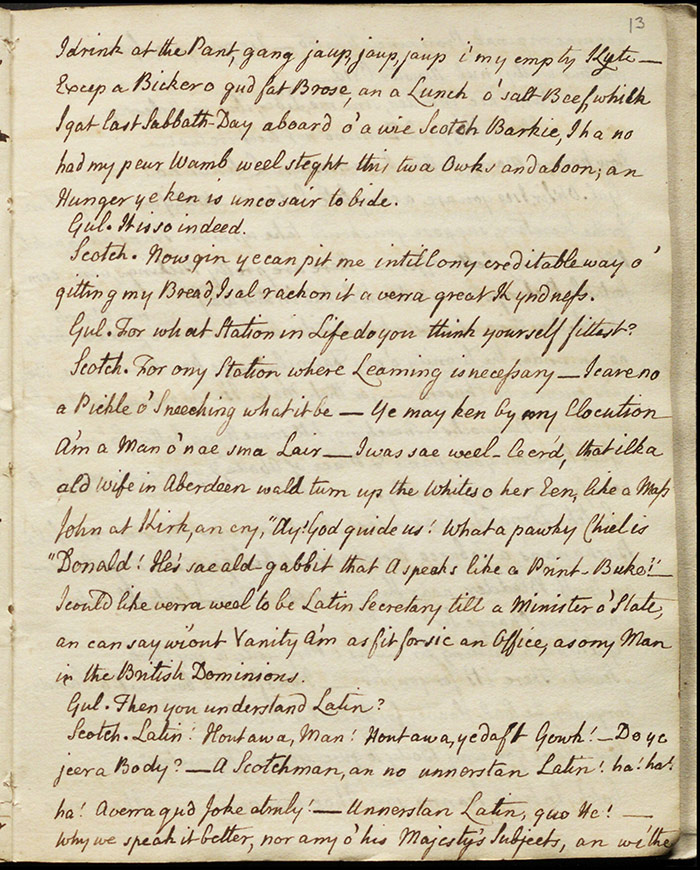 13
I drink at the Pant, gang jaup, jaup, jaup i' my empty Kyte —
Excep a Bicker o gud fat Brose, an a Lunch o' salt Beef, whilk
I gat last Sabbath-Day aboard o' a wie Scotch Barkie, I ha no
had my peur Wamb weel steght this twa Owks and aboon; an
Hunger ye ken is unco sair to bide.
Gul. It is so indeed.
Scotch. Now gin ye can pit me intill ony creditable way o'
gitting my Bread, I sal rackon it a verra great Kyndneſs.
Gul. For what Station in Life do you think yourself fittest?
Scotch. For ony Station where Learning is neceſsary — I care no
a Pickle o' Sneeching what it be — Ye may ken by my Elocution
A'm a Man o' nae sma Lair — I was sae weel-leer'd, that ilka
ald Wife in Aberdeen wald turn up the Whites o her Een, like a Maſs
John at Kirk, an cry, "Ay! God guide us! What a pawky Chiel is
"Donald! He's sae ald-gabbit that A speaks like a Print-Buke!" —
I could like verra weel to be Latin Secretary till a Minister o' State,
an can say wi'out Vanity A'm as fit for sic an Office, as ony Man
in the British Dominions.
Gul. Then you understand Latin?
Scotch. Latin! Hout awa, Man! Hout awa, ye daft Gowk! — Do ye
jeer a Body? — A Scotchman, an no unnerstan Latin! ha! ha!
ha! A verra gud Joke atruly! — Unnerstan Latin, quo He! —
Why we speak it better, nor any o' his Majesty's Subjects, an wi' the